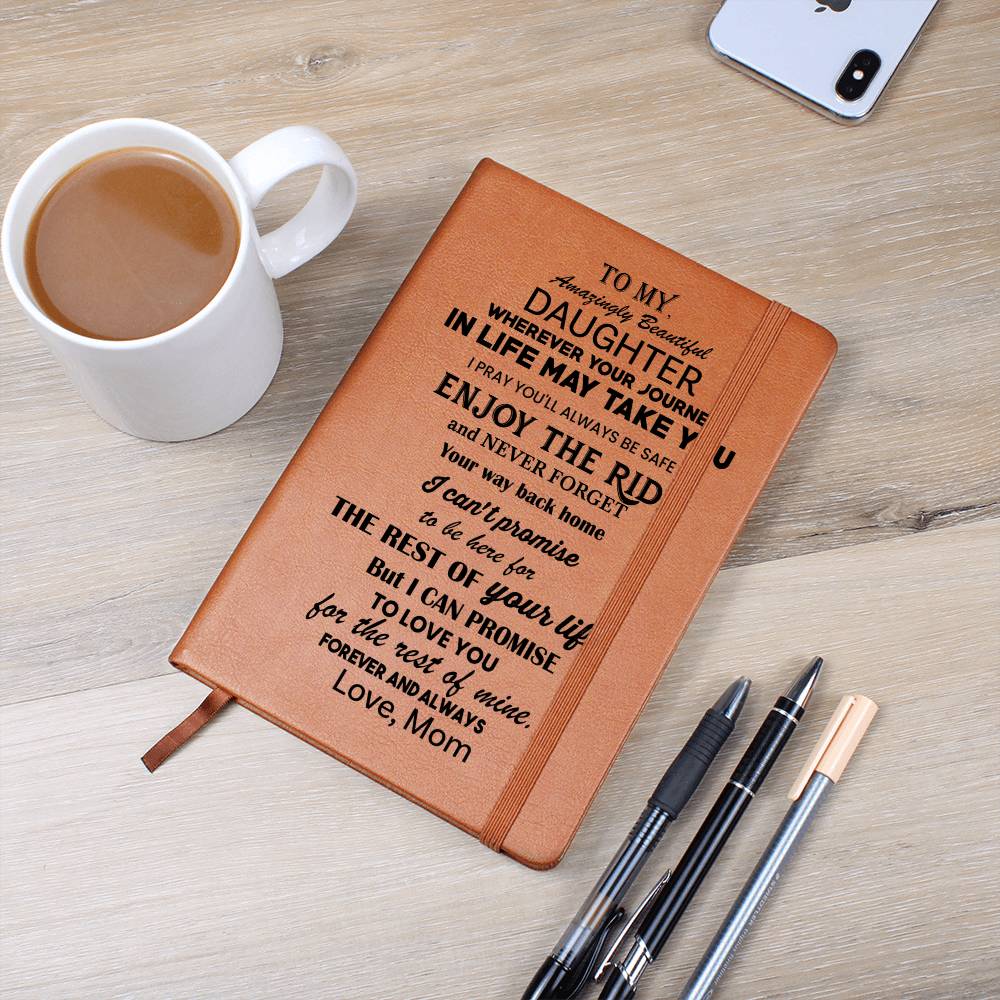 TO MY,
Amazingly Beautiful
DAUGHTER
WHEREVER YOUR JOURNE
IN LIFE MAY TAKE Y U
I PRAY YOU'LL ALWAYS BE SAFE
ENJOY THE RID
and NEVER FORGET
Your way back home
I can't promise
to be here for
THE REST OF your lif
But I CAN PROMISE
TO LOVE YOU
for the rest of mine,
FOREVER AND ALWAYS
Love, Mom